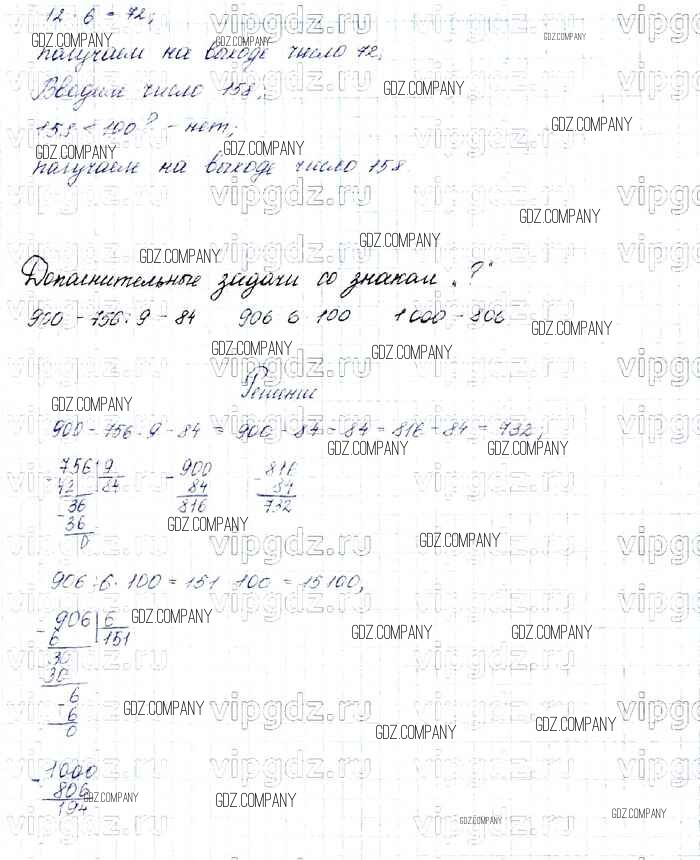 12 · 6 = 72;
получаем на выходе число 72;
Вводим число 158;
158 < 100? - нет;
получаем на выходе число 158.
Дополнительные задачи со знаком „?“
900 - 756 : 9 - 84 906 : 6 · 100 1000 - 806
Решение
900 - 756 : 9 - 84 = 900 - 84 - 84 = 816 - 84 = 732;
756 9 - 900 - 816
72 84 84 84
36 816 732
- 36
0
906 : 6 · 100 = 151 · 100 = 15100;
- 906 6
6 151
30
30
- 6
6
0
- 1000
806
194
GDZ.COMPANY
vipgdz.ru